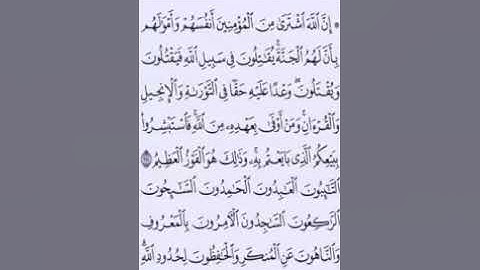 ۞ إِنَّ ٱللَّهَ ٱشْتَرَىٰ مِنَ ٱلْمُؤْمِنِينَ أَنفُسَهُمْ وَأَمْوَٰلَهُم
بِأَنَّ لَهُمُ ٱلْجَنَّةَ ۚ يُقَٰتِلُونَ فِى سَبِيلِ ٱللَّهِ فَيَقْتُلُونَ
وَيُقْتَلُونَ ۖ وَعْدًا عَلَيْهِ حَقًّا فِى ٱلتَّوْرَىٰةِ وَٱلْإِنجِيلِ
وَٱلْقُرْءَانِ ۚ وَمَنْ أَوْفَىٰ بِعَهْدِهِۦ مِنَ ٱللَّهِ ۚ فَٱسْتَبْشِرُوا۟
بِبَيْعِكُمُ ٱلَّذِى بَايَعْتُم بِهِۦ ۚ وَذَٰلِكَ هُوَ ٱلْفَوْزُ ٱلْعَظِيمُ ١١١
ٱلتَّٰٓئِبُونَ ٱلْعَٰبِدُونَ ٱلْحَٰمِدُونَ ٱلسَّٰٓئِحُونَ
ٱلرَّٰكِعُونَ ٱلسَّٰجِدُونَ ٱلْءَامِرُونَ بِٱلْمَعْرُوفِ
وَٱلنَّاهُونَ عَنِ ٱلْمُنكَرِ وَٱلْحَٰفِظُونَ لِحُدُودِ ٱللَّهِ ۗ